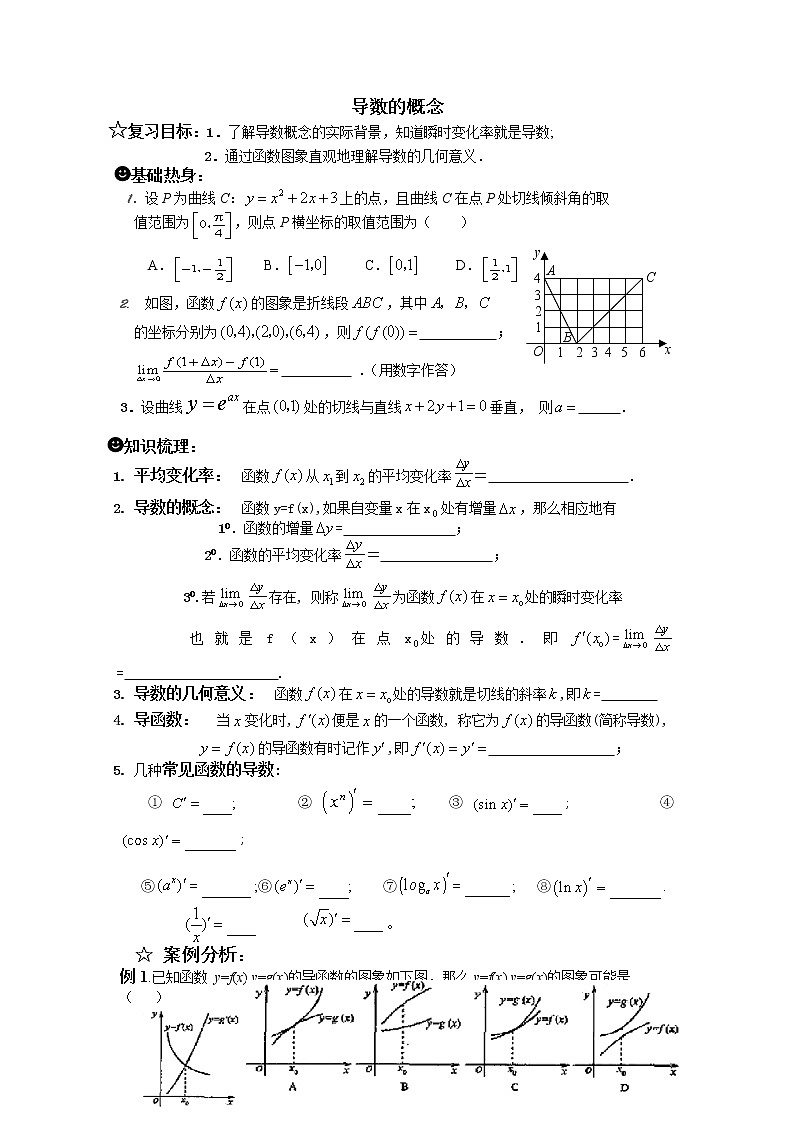 导数的概念
☆复习目标:1.了解导数概念的实际背景,知道瞬时变化率就是导数;
2.通过函数图象直观地理解导数的几何意义.
☻基础热身:
1. 设 P 为曲线 C: y = x² + 2x + 3 上的点,且曲线 C 在点 P 处切线倾斜角的取
值范围为[0,π/4],则点 P 横坐标的取值范围为( )
A.[-1,-1/2] B.[-1,0] C.[0,1] D.[1/2,1]
2. 如图,函数 f(x) 的图象是折线段 ABC,其中 A, B, C
的坐标分别为 (0,4),(2,0),(6,4),则 f(f(0)) = ________;
lim Δx→0 (f(1+Δx)-f(1))/Δx = ________ .(用数字作答)
y
4
3
2
1
O 1 2 3 4 5 6 x
A
B
C
3.设曲线 y = e^{ax} 在点 (0,1) 处的切线与直线 x + 2y + 1 = 0 垂直, 则 a = ______.
☻知识梳理:
1. 平均变化率: 函数 f(x) 从 x₁ 到 x₂ 的平均变化率 Δy/Δx = ________.
2. 导数的概念: 函数 y=f(x),如果自变量 x 在 x₀ 处有增量 Δx,那么相应地有
1⁰.函数的增量 Δy = ________;
2⁰.函数的平均变化率 Δy/Δx = ________;
3⁰.若 lim Δx→0 Δy/Δx 存在, 则称 lim Δx→0 Δy/Δx 为函数 f(x) 在 x = x₀ 处的瞬时变化率
也就是 f(x)在点 x₀ 处的导数.即 f′(x₀) = lim Δx→0 Δy/Δx
= ________.
3. 导数的几何意义: 函数 f(x) 在 x = x₀ 处的导数就是切线的斜率 k,即 k = ________
4. 导函数: 当 x 变化时, f′(x) 便是 x 的一个函数, 称它为 f(x) 的导函数(简称导数),
y = f(x) 的导函数有时记作 y′,即 f′(x) = y′ = ________;
5. 几种常见函数的导数:
① C′ = ____; ② (xⁿ)′ = ____; ③ (sin x)′ = ____; ④
(cos x)′ = ______;
⑤(aˣ)′ = ______;⑥(eˣ)′ = ____; ⑦(log_a x)′ = ______; ⑧(ln x)′ = ______.
(1/x)′ = ____ (√x)′ = ____。
☆ 案例分析:
例 1.已知函数 y=f(x),y=g(x)的导函数的图象如下图,那么 y=f(x),y=g(x)的图象可能是
( )
y y=f′(x) y=g′(x) O x₀ x
y y=f(x) y=g(x) O x₀ x A
y y=f(x) y=g(x) O x₀ x B
y y=g(x) y=f(x) O x₀ x C
y y=g(x) y=f(x) O x₀ x D